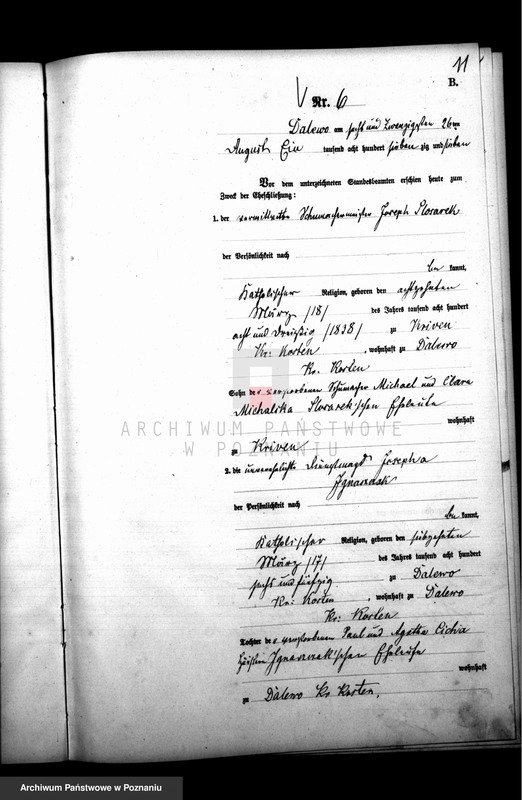 11
B.
Nr. 6
Dalewo am sechs und zwanzigsten 26ten
August Ein tausend acht hundert sieben zig und sieben
Vor dem unterzeichneten Standesbeamten erschien heute zum
Zweck der Eheschließung:
1. der verwittwete Schumachermeister Joseph Slosarek
der Persönlichkeit nach
be kannt,
Katholischer Religion, geboren den achtzehnten
März /18/ des Jahres tausend acht hundert
acht und dreißig /1838/ zu Kriven
Kr: Kosten, wohnhaft zu Dalewo
Kr. Kosten
Sohn des verstorbenen Schumacher Michael und Clara
Michalska Slosarek'schen Eheleute
wohnhaft
zu Kriven
ARCHIWUM PAŃSTWOWE
W POZNANIU
2. die unverehelichte Dienstmagd Josepha
Ignaszak
der Persönlichkeit nach
be kannt,
Katholischer Religion, geboren den siebzehnten
März /17/ des Jahres tausend acht hundert
sechs und fünfzig zu Dalewo
Kr: Kosten, wohnhaft zu Dalewo
Kr: Kosten
Tochter des verstorbenen Paul und Agatha
Ignaszak'schen Eheleute
wohnhaft
zu Dalewo Kr Kosten.
Archiwum Państwowe w Poznaniu